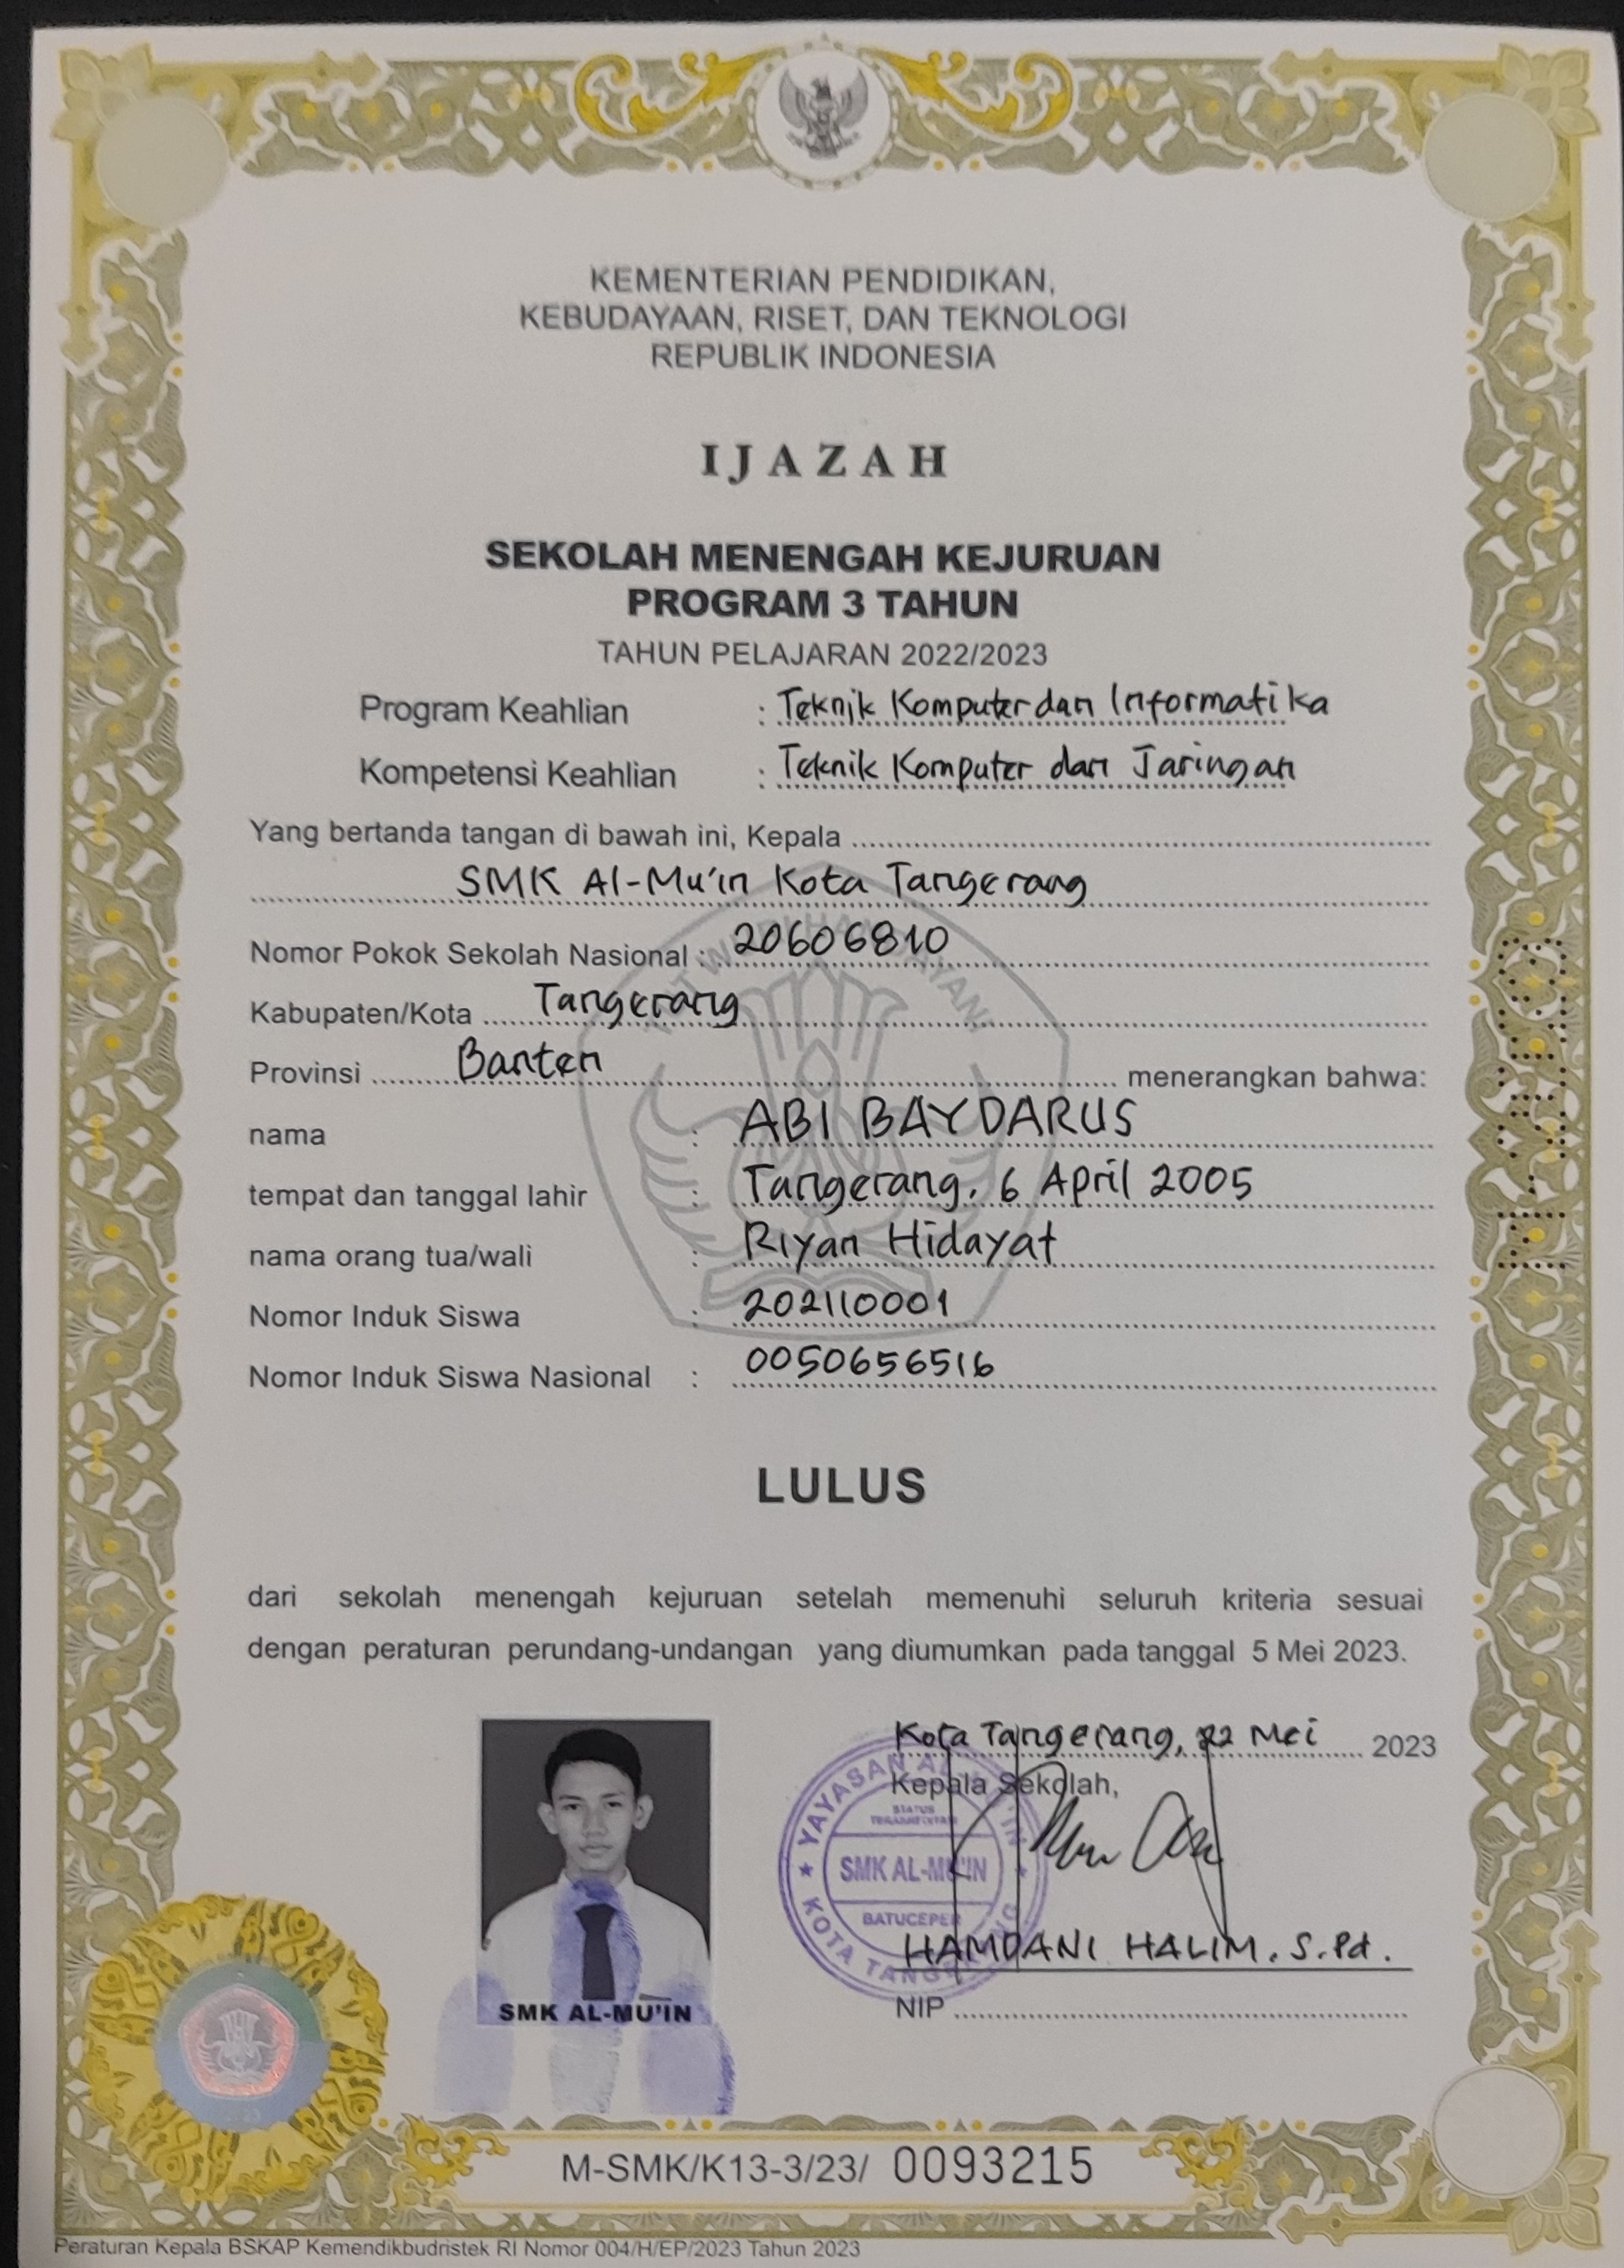 KEMENTERIAN PENDIDIKAN,
KEBUDAYAAN, RISET, DAN TEKNOLOGI
REPUBLIK INDONESIA
IJAZAH
SEKOLAH MENENGAH KEJURUAN
PROGRAM 3 TAHUN
TAHUN PELAJARAN 2022/2023
Program Keahlian : Teknik Komputer dan Informatika
Kompetensi Keahlian : Teknik Komputer dan Jaringan
Yang bertanda tangan di bawah ini, Kepala
SMK Al-Mu'in Kota Tangerang
Nomor Pokok Sekolah Nasional : 20606810
Kabupaten/Kota Tangerang
Provinsi Banten menerangkan bahwa:
nama : ABI BAYDARUS
tempat dan tanggal lahir : Tangerang, 6 April 2005
nama orang tua/wali : Riyan Hidayat
Nomor Induk Siswa : 202110001
Nomor Induk Siswa Nasional : 0050656516
LULUS
dari sekolah menengah kejuruan setelah memenuhi seluruh kriteria sesuai
dengan peraturan perundang-undangan yang diumumkan pada tanggal 5 Mei 2023.
Kota Tangerang, 22 Mei 2023
Kepala Sekolah,
YAYASAN AL-MU'IN
STATUS
SMK AL-MU'IN
BATUCEPER
KOTA TANGERANG
HAMDANI HALIM. S.Pd.
NIP
SMK AL-MU'IN
M-SMK/K13-3/23/ 0093215
Peraturan Kepala BSKAP Kemendikbudristek RI Nomor 004/H/EP/2023 Tahun 2023